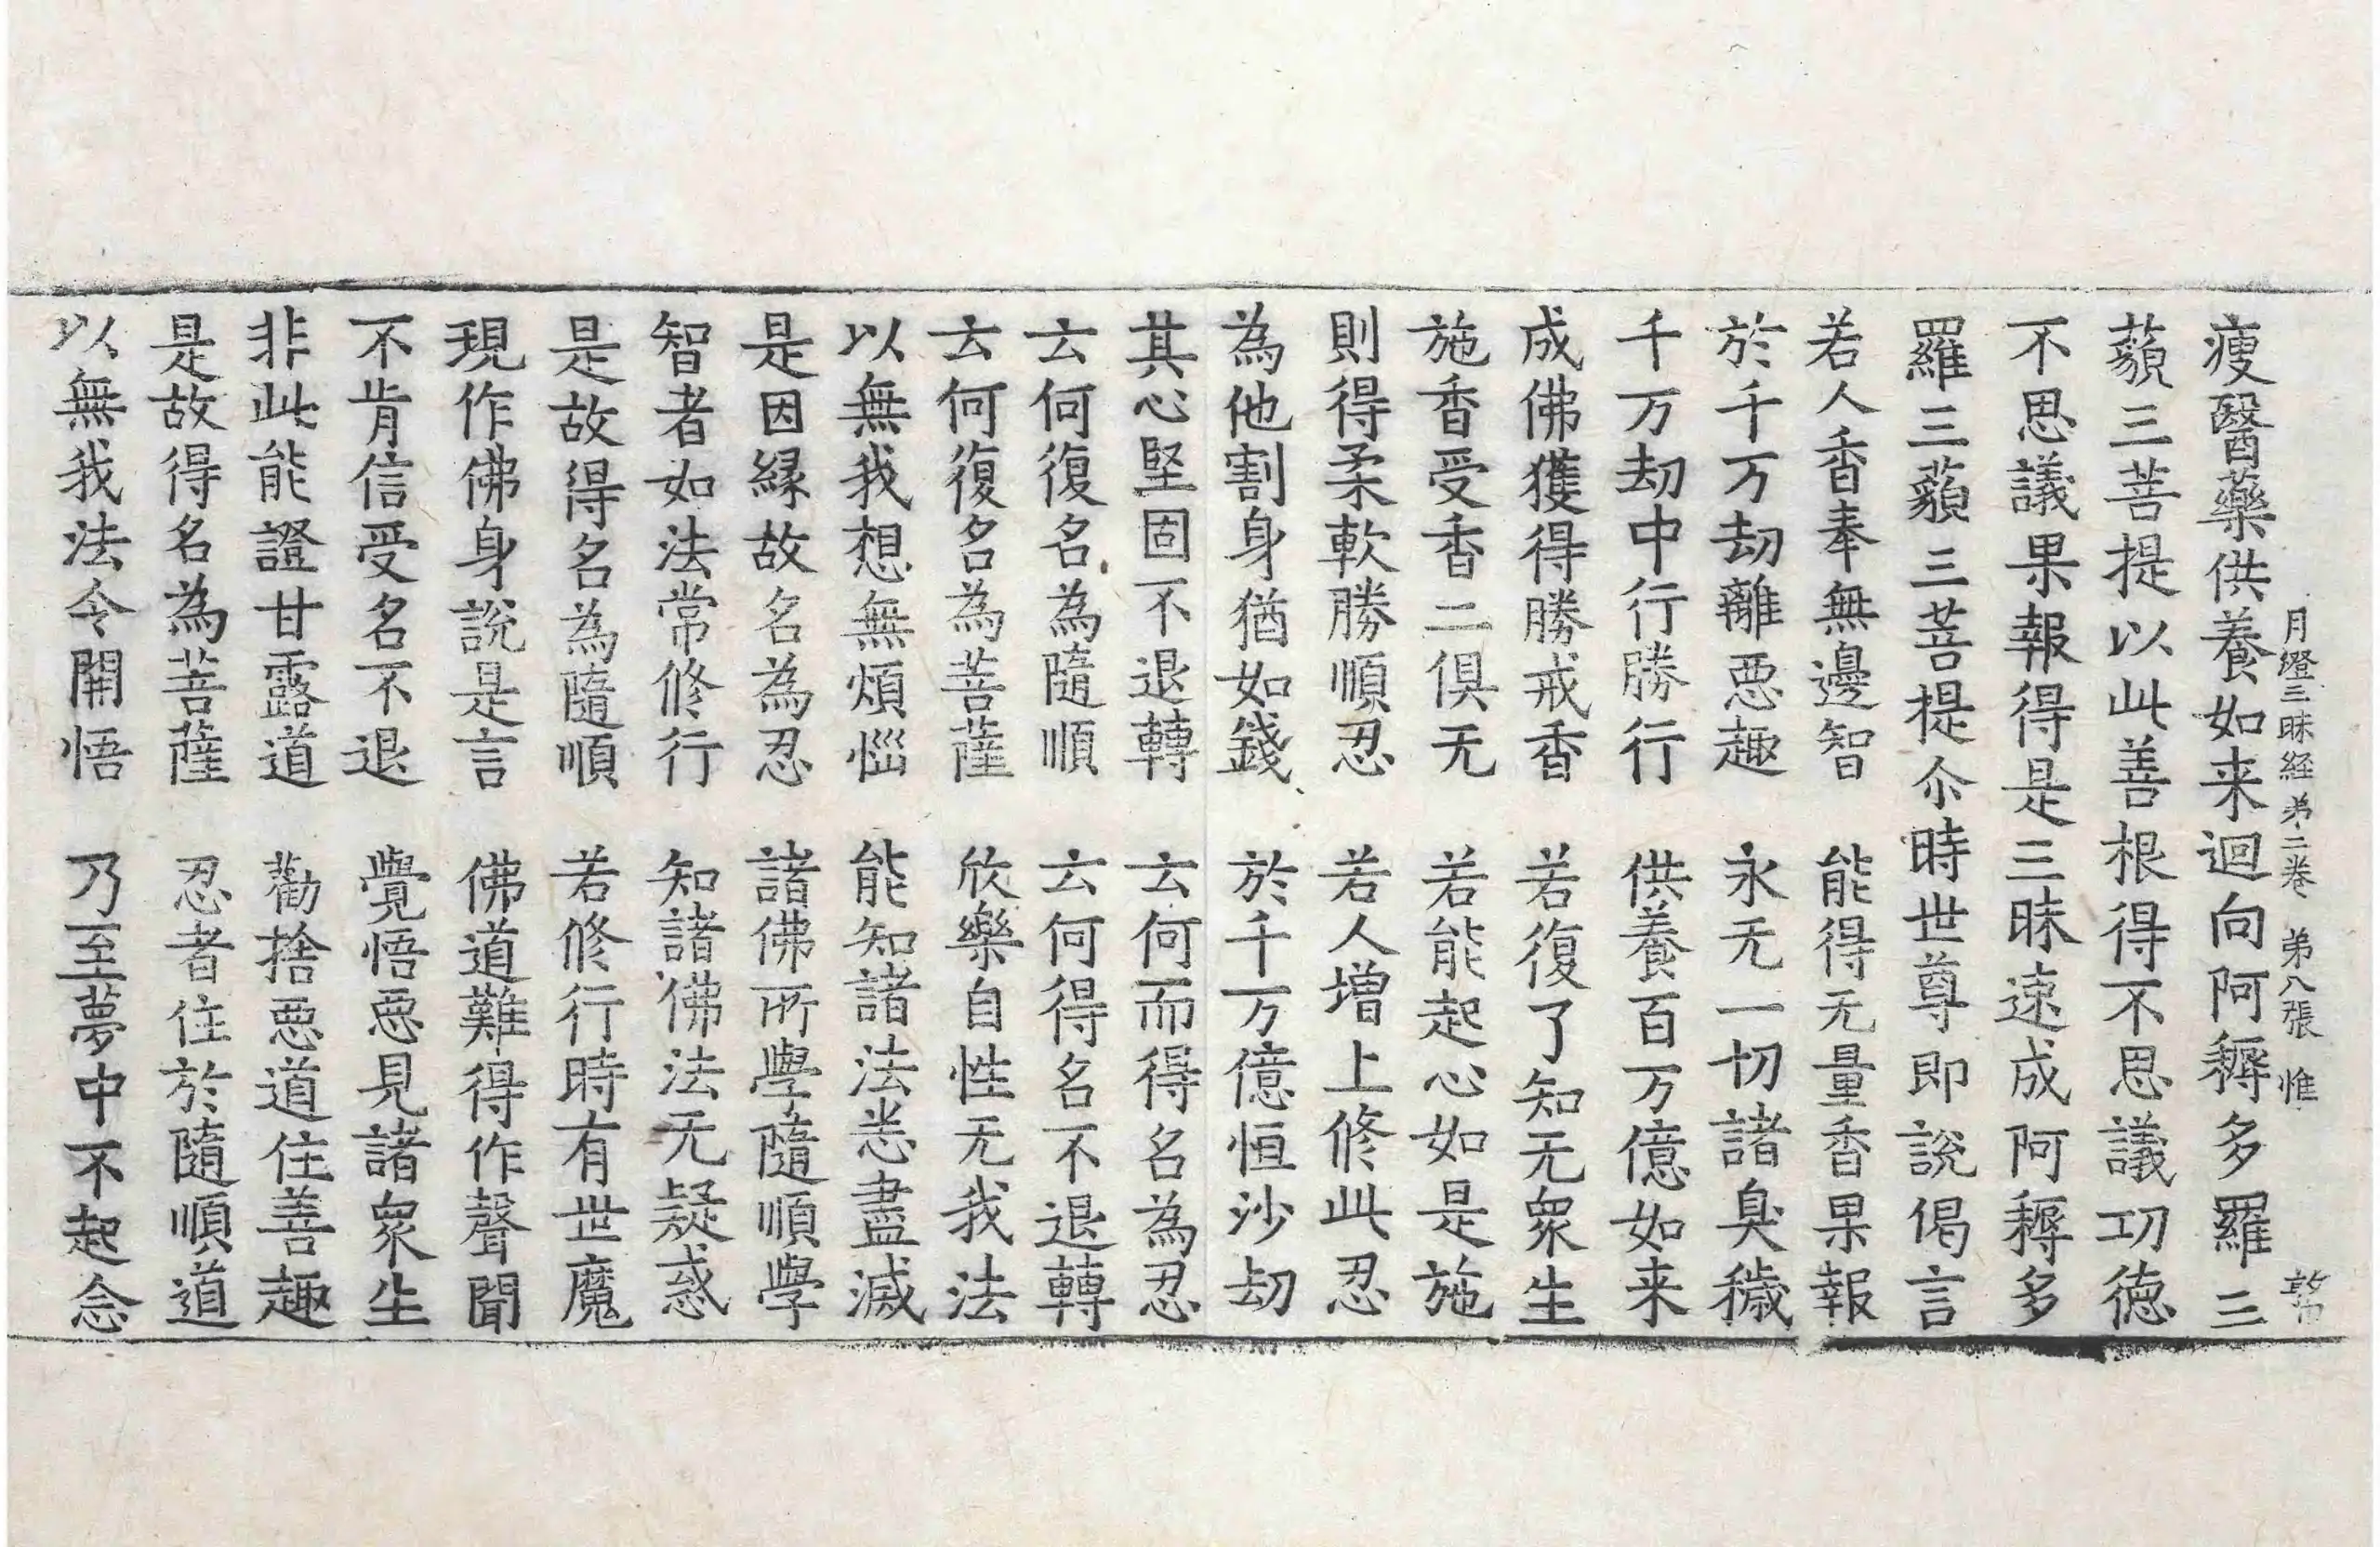 月燈三昧経 弟二卷 弟八張 惟
瘦醫藥供養如来迴向阿耨多羅三
藐三菩提以此善根得不思議功德
不思議果報得是三昧速成阿耨多
羅三藐三菩提尒時世尊即說偈言
若人香奉無邊智 能得无量香果報
於千万劫離惡趣 永无一切諸臭穢
千万劫中行勝行 供養百万億如来
成佛獲得勝戒香 若復了知无衆生
施香受香二俱无 若能起心如是施
則得柔軟勝順忍 若人增上修此忍
為他割身猶如錢 於千万億恒沙劫
其心堅固不退轉 云何而得名為忍
云何復名為隨順 云何得名不退轉
云何復名為菩薩 欣樂自性无我法
以無我想無煩惱 能知諸法悉盡滅
是因緣故名為忍 諸佛所學隨順學
智者如法常修行 知諸佛法无疑惑
是故得名為隨順 若修行時有世魔
現作佛身說是言 佛道難得作聲聞
不肯信受名不退 覺悟惡見諸衆生
非此能證甘露道 勸捨惡道住善趣
是故得名為菩薩 忍者住於隨順道
以無我法令開悟 乃至夢中不起念